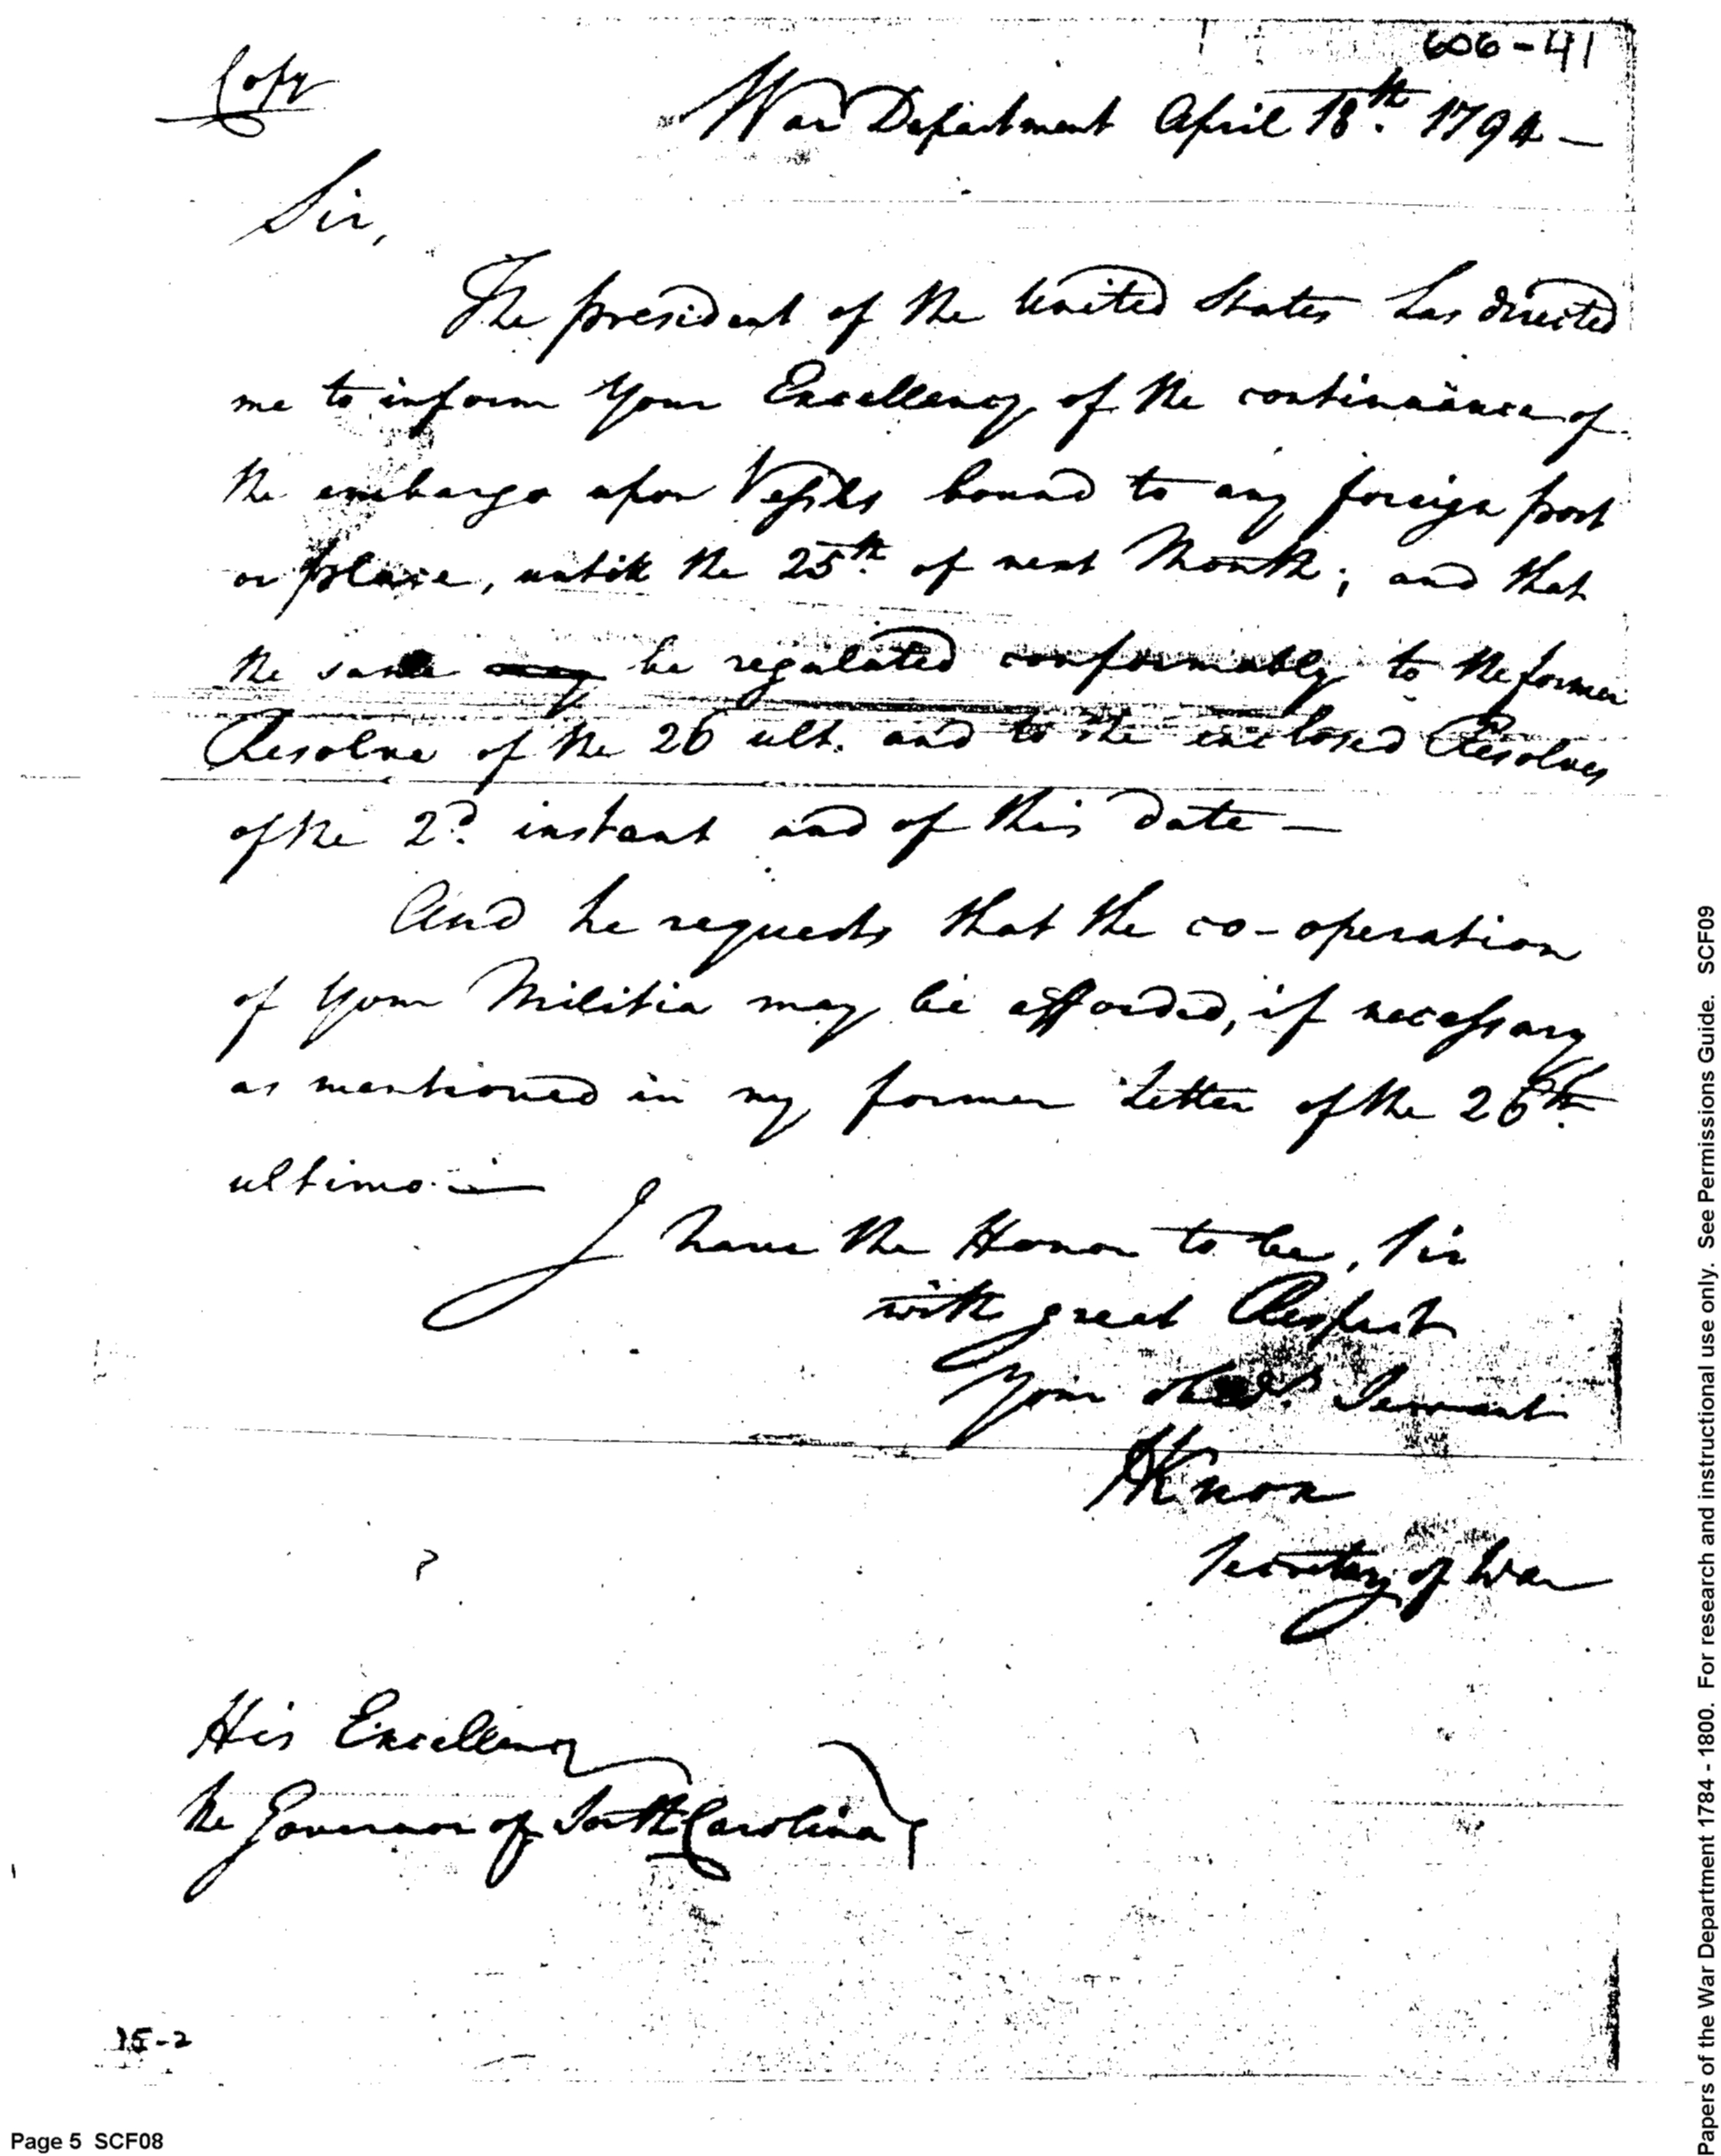 606-41
Copy
War Department April 18th. 1794 —
Sir,
The president of the United States has directed
me to inform Your Excellency of the continuance of
the embargo upon Vessels bound to any foreign port
or place, untill the 25th. of next Month; and that
the same may be regulated conformably to the former
Resolve of the 26 ult. and to the enclosed Resolves
of the 2d. instant and of this date —
And he requests that the co-operation
of Your Militia may be afforded, if necessary
as mentioned in my former Letter of the 26th.
ultimo. —
I have the Honor to be, Sir
with great Respect
Your Obed. Servant
HKnox
Secretary of War
His Excellency
the Governor of South Carolina
15-2
Page 5 SCF08
Papers of the War Department 1784 - 1800. For research and instructional use only. See Permissions Guide. SCF09